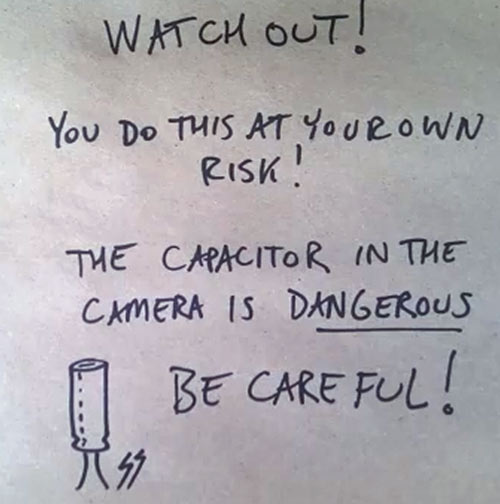 WATCH OUT!
YOU DO THIS AT YOUR OWN
RISK!
THE CAPACITOR IN THE
CAMERA IS DANGEROUS
BE CAREFUL!